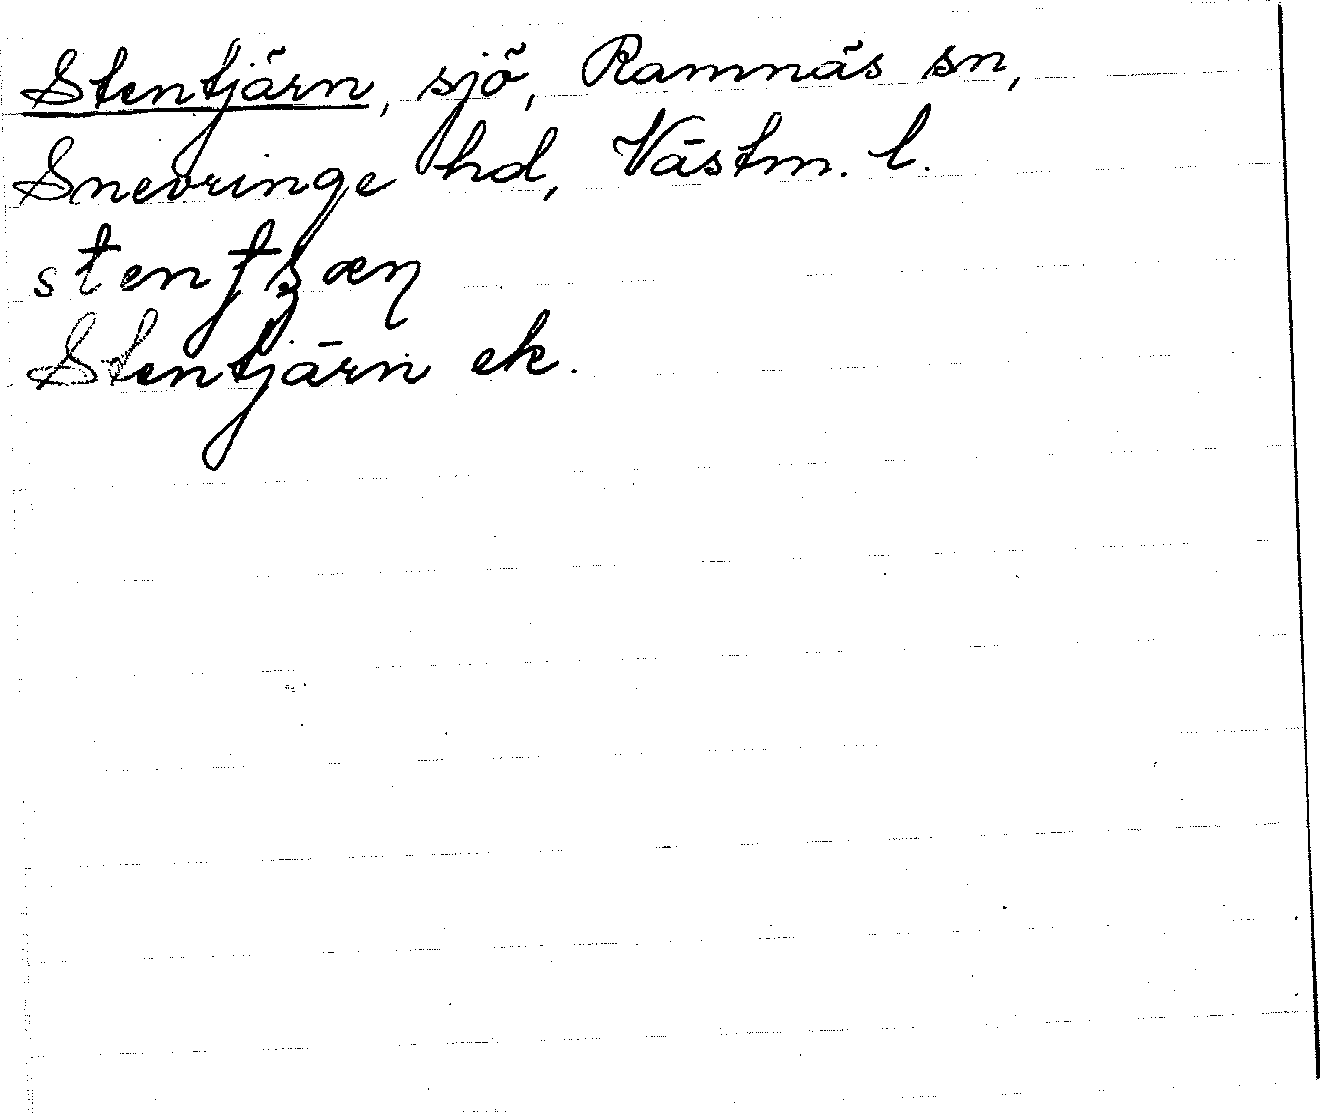 Stentjärn, sjö, Ramnäs sn,
Snevringe hd, Västm. l.
Stentjärn ek.